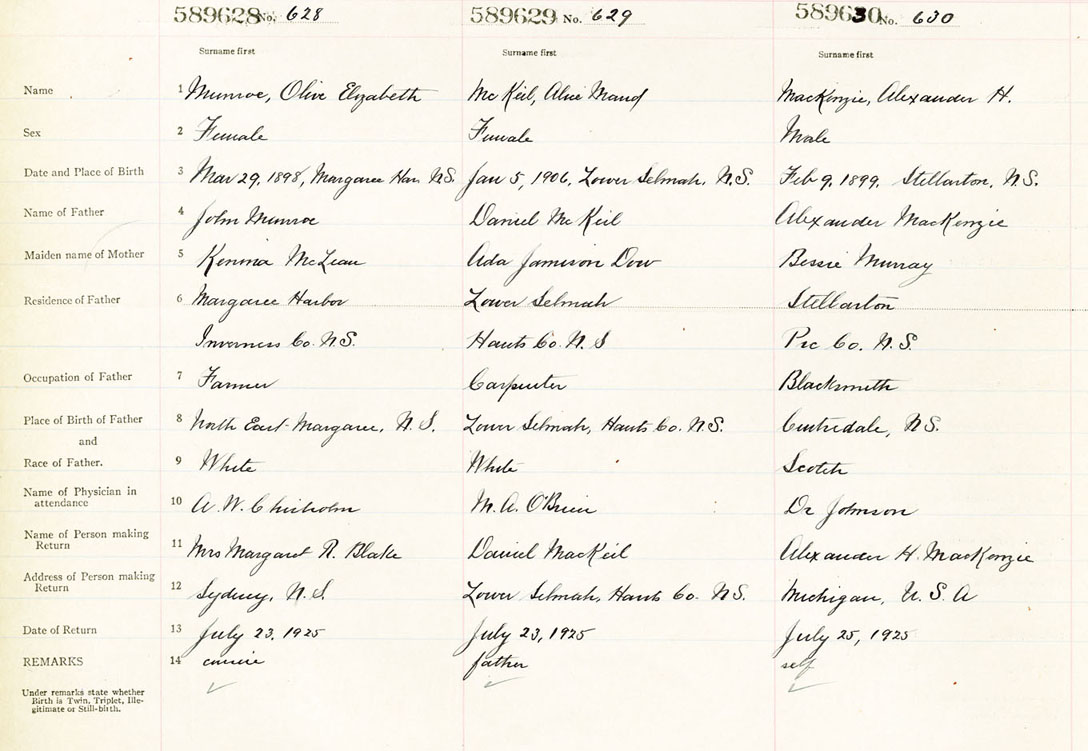 589628 No. 628 589629 No. 629 589630 No. 630
Surname first Surname first Surname first
Name 1 Munroe, Olive Elizabeth McKeil, Alice Maud MacKenzie, Alexander H.
Sex 2 Female Female Male
Date and Place of Birth 3 Mar 29, 1898, Margaree Har. N.S. Jan 5, 1906, Lower Selmah, N.S. Feb 9, 1899, Stellarton, N.S.
Name of Father 4 John Munroe Daniel McKeil Alexander MacKenzie
Maiden name of Mother 5 McLean Ada Jamison Dow Bessie Murray
Residence of Father 6 Margaree Harbor Lower Selmah Stellarton
Inverness Co. N.S. Hants Co. N.S Pic Co. N.S.
Occupation of Father 7 Farmer Carpenter Blacksmith
Place of Birth of Father 8 North East Margaree, N.S. Lower Selmah, Hants Co. N.S. Centredale, N.S.
and
Race of Father. 9 White White Scotch
Name of Physician in
attendance 10 A. W. Chisholm M. A. O'Brien Dr Johnson
Name of Person making
Return 11 Mrs Margaret R. Blake Daniel MacKeil Alexander H. MacKenzie
Address of Person making
Return 12 Sydney, N.S Lower Selmah, Hants Co. N.S. Michigan, U.S.A
Date of Return 13 July 23, 1925 July 23, 1925 July 25, 1925
REMARKS 14 cousin father self
Under remarks state whether
Birth is Twin, Triplet, Ille-
gitimate or Still-birth.